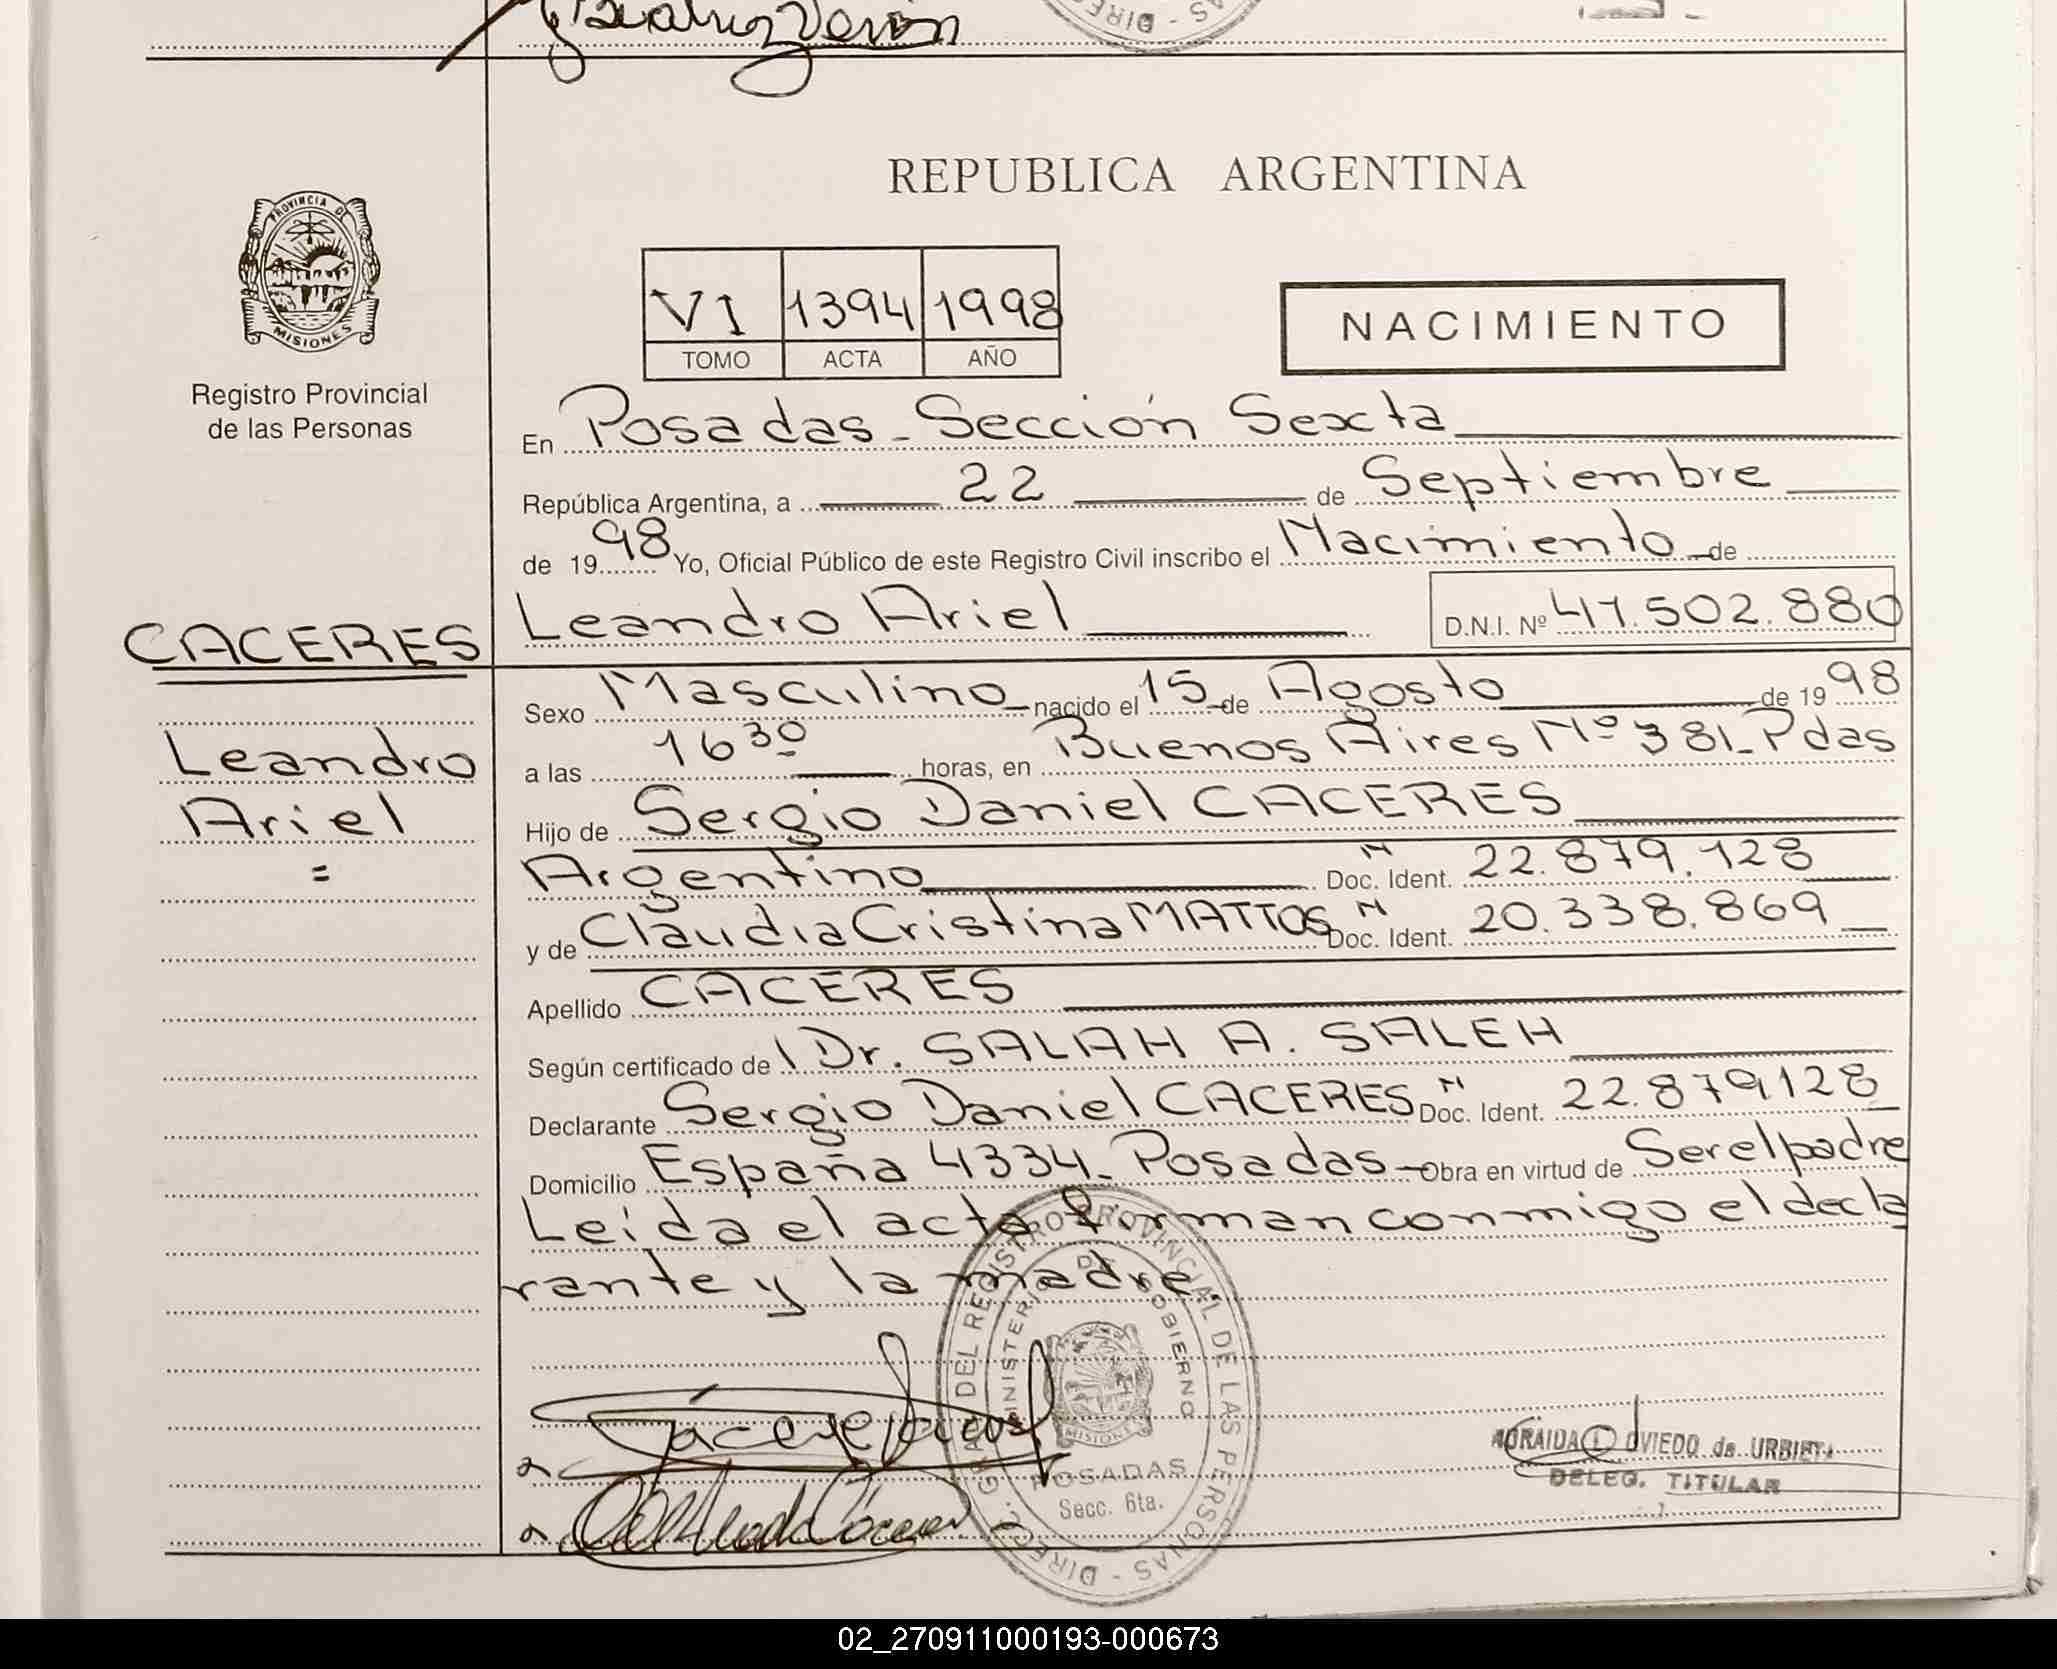 PROVINCIA DE
MISIONES
Registro Provincial
de las Personas
CACERES
Leandro
Ariel
=
REPUBLICA ARGENTINA
VI 1394 1998
TOMO ACTA AÑO
NACIMIENTO
En Posadas - Sección Sexta
República Argentina, a 22 de Septiembre
de 1998 Yo, Oficial Público de este Registro Civil inscribo el Nacimiento de
Leandro Ariel D.N.I. Nº 41.502.880
Sexo Masculino nacido el 15 de Agosto de 1998
a las 16 30 horas, en Buenos Aires Nº 381 - Pdas
Hijo de Sergio Daniel CACERES
Argentino N Doc. Ident. 22.879.128
y de Claudia Cristina MATTOS N Doc. Ident. 20.338.869
Apellido CACERES
Según certificado de Dr. SALAH A. SALEH
Declarante Sergio Daniel CACERES N Doc. Ident. 22.879.128
Domicilio España 4334 - Posadas - Obra en virtud de Ser el padre
Leída el acta firman conmigo el decla
rante y la madre.
DIREC. GRAL DEL REGISTRO PROVINCIAL DE LAS PERSONAS
MINISTERIO DE GOBIERNO
MISIONES
POSADAS
Secc. 6ta.
OVIEDO de URBIETA
DELEG. TITULAR
02_270911000193-000673